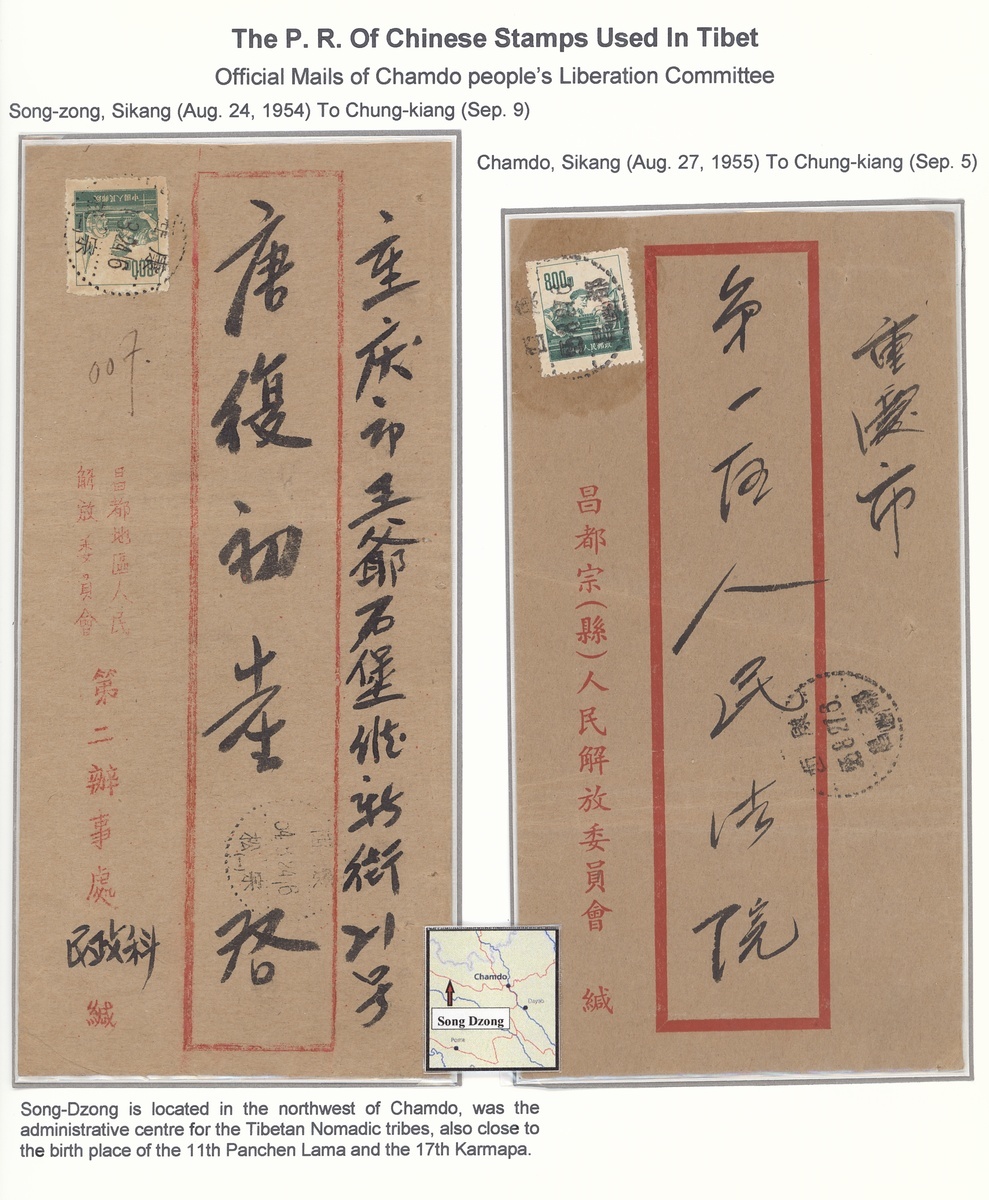 The P. R. Of Chinese Stamps Used In Tibet
Official Mails of Chamdo people's Liberation Committee
Song-zong, Sikang (Aug. 24, 1954) To Chung-kiang (Sep. 9)
Chamdo, Sikang (Aug. 27, 1955) To Chung-kiang (Sep. 5)
重庆市王爺石堡維新街21号
唐復初
啓
007.
昌都地區人民
解放委員會
第二辦事處
民政科
緘
中国人民郵政
800
重慶市
第一
人民法院
昌都宗(縣)人民解放委員會
緘
800
中国人民郵政
55.8.27.
Chamdo
Dayab
Song Dzong
Pome
Song-Dzong is located in the northwest of Chamdo, was the
administrative centre for the Tibetan Nomadic tribes, also close to
the birth place of the 11th Panchen Lama and the 17th Karmapa.